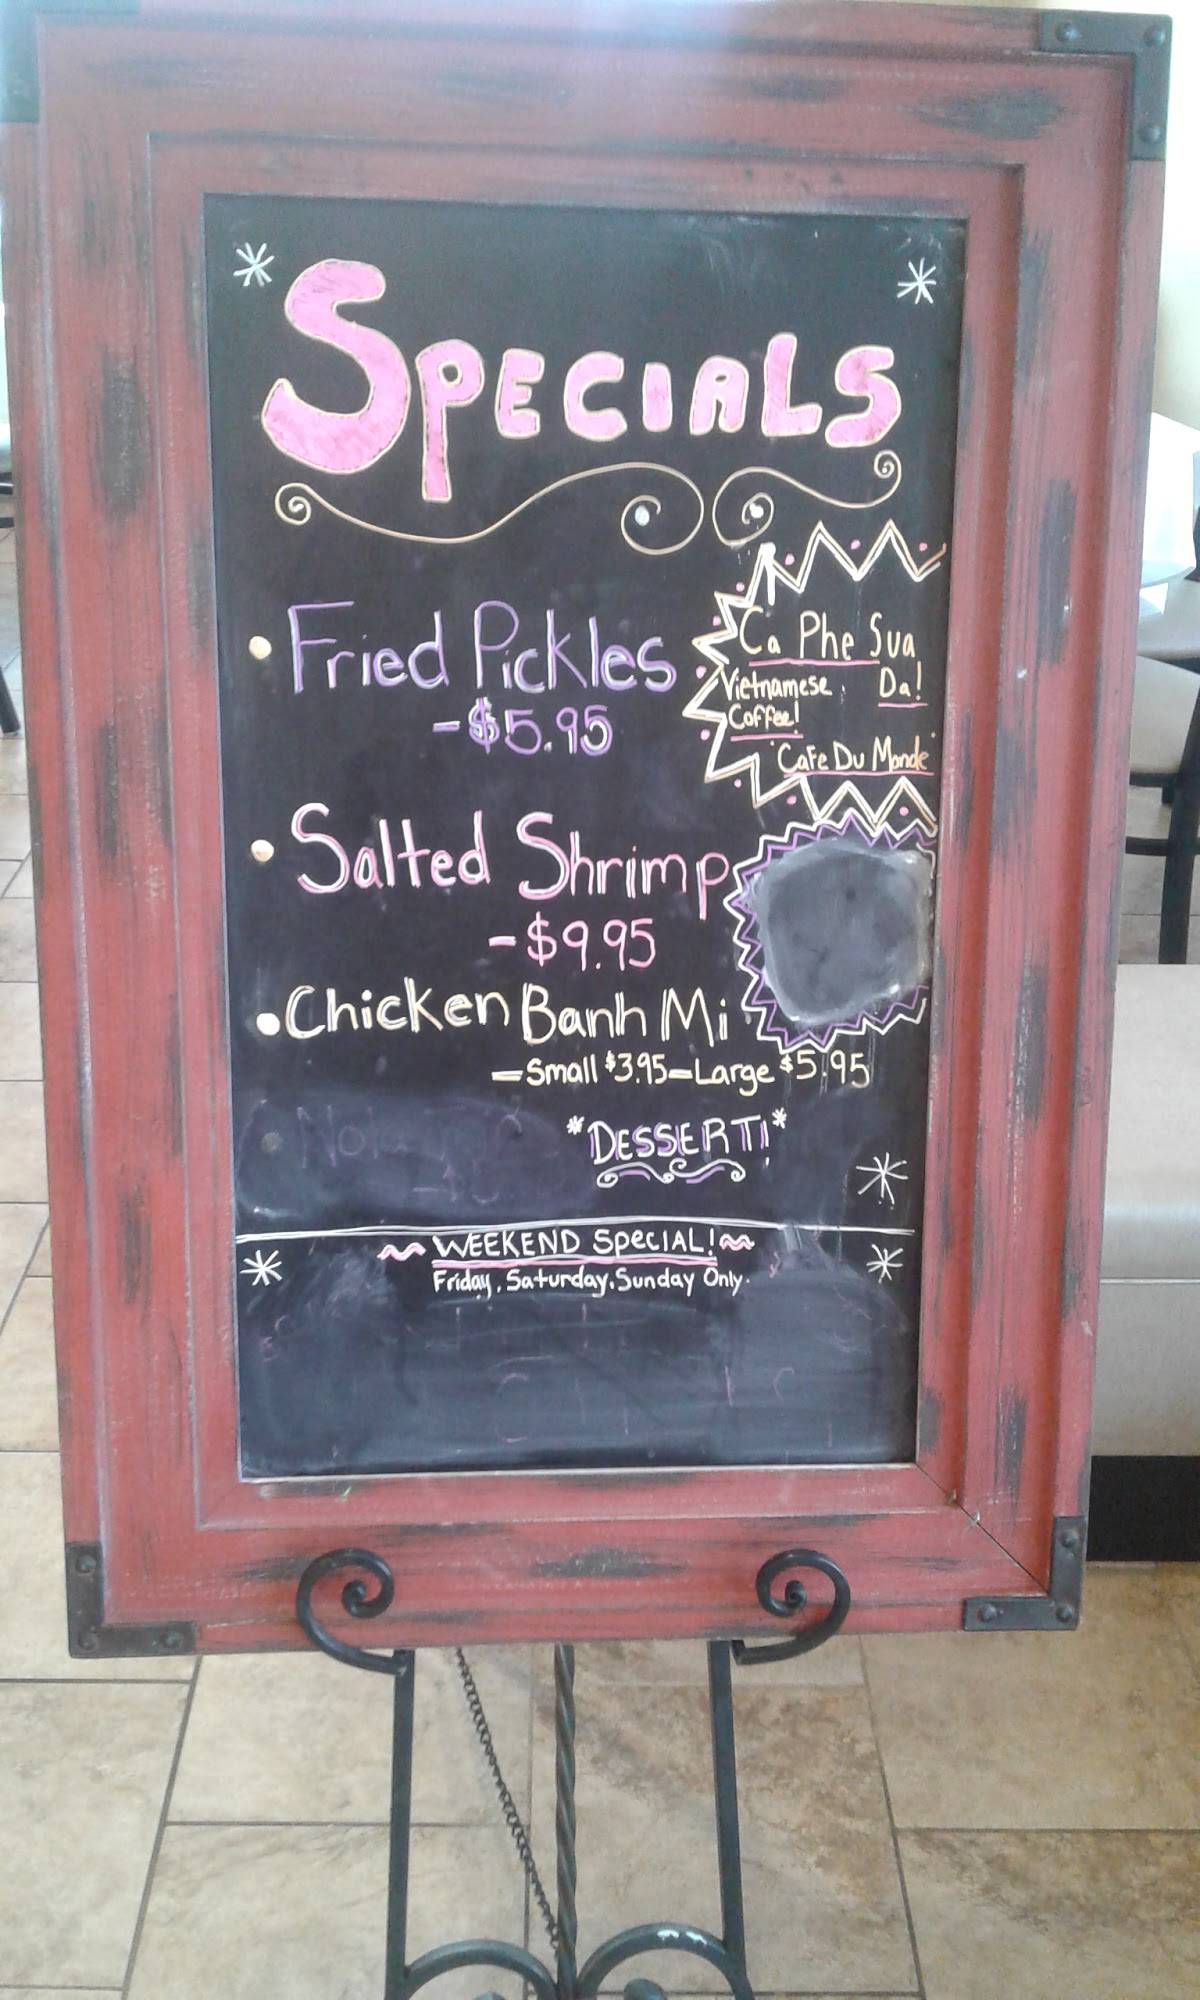 Specials
Fried Pickles
- $5.95
Ca Phe Sua
Vietnamese Da!
Coffee!
Cafe Du Monde
Salted Shrimp
- $9.95
Chicken Banh Mi
- Small $3.95 - Large $5.95
*DESSERT!*
WEEKEND SPECIAL!
Friday, Saturday, Sunday Only.